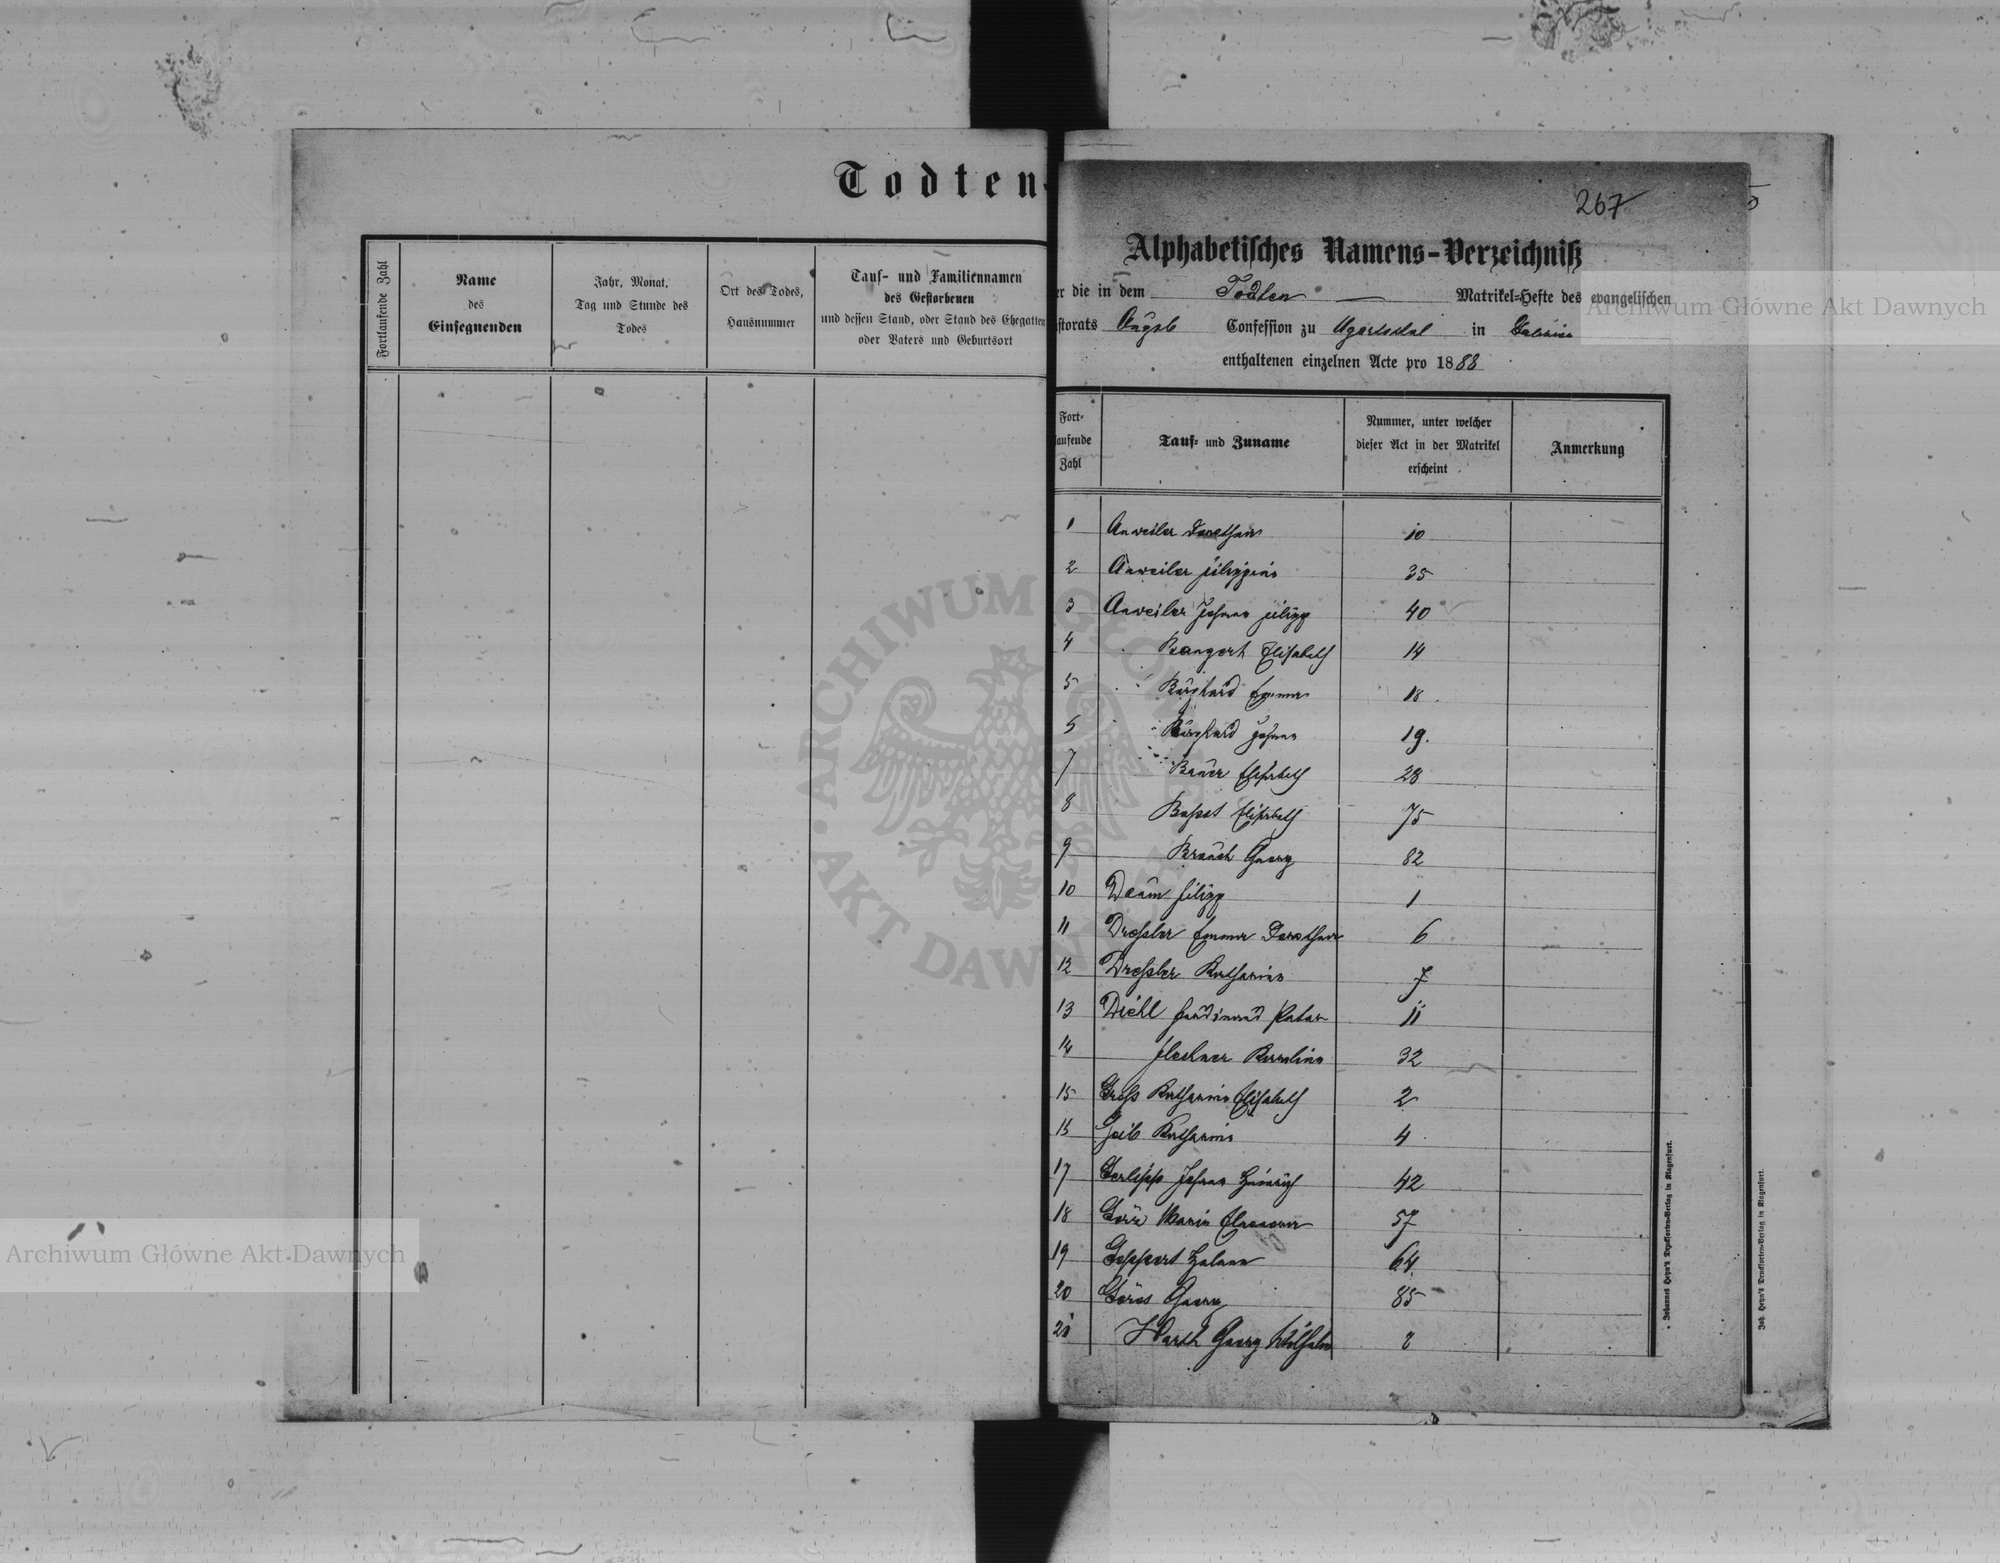 Todten-
Fortlaufende Zahl
Name
des
Einsegnenden
Jahr, Monat,
Tag und Stunde des
Todes
Ort des Todes,
Hausnummer
Tauf- und Familiennamen
des Gestorbenen
und dessen Stand, oder Stand des Ehegatten
oder Vaters und Geburtsort
267
Alphabetisches Namens-Verzeichniß
er die in dem Todten Matrikel-Hefte des evangelischen
storats Augsb Confession zu Ugartsthal in Galizien
enthaltenen einzelnen Acte pro 1888
Fort-
laufende
Zahl
Tauf- und Zuname
Nummer, unter welcher
dieser Act in der Matrikel
erscheint
Anmerkung
1 Anweiler Dorothea 10
2 Anweiler Filippine 35
3 Anweiler Johann Filipp 40
4 Bangert Elisabeth 14
5 Burghard Emma 18
6 Burghard Johann 19.
7 Bauer Elisabeth 28
8 Elisabeth 75
9 Brauch Georg 82
10 Daum Filipp 1
11 Dressler Emma Dorothea 6
12 Dressler Katharina 7
13 Diehl Ferdinand Peter 11
14 Karolina 32
15 Groß Katharina Elisabeth 2
16 Geib Katharina 4
17 Johann Heinrich 42
18 Maria Eleonora 57
19 Geppert Helena 64
20 Georg 85
21 Harth Georg Wilhelm 8
Johannes Heyn's Drucksorten-Verlag in Klagenfurt.
Joh. Heyn's Drucksorten-Verlag in Klagenfurt.
Archiwum Główne Akt Dawnych
Archiwum Główne Akt Dawnych
ARCHIWUM GŁÓWNE
AKT DAWNYCH